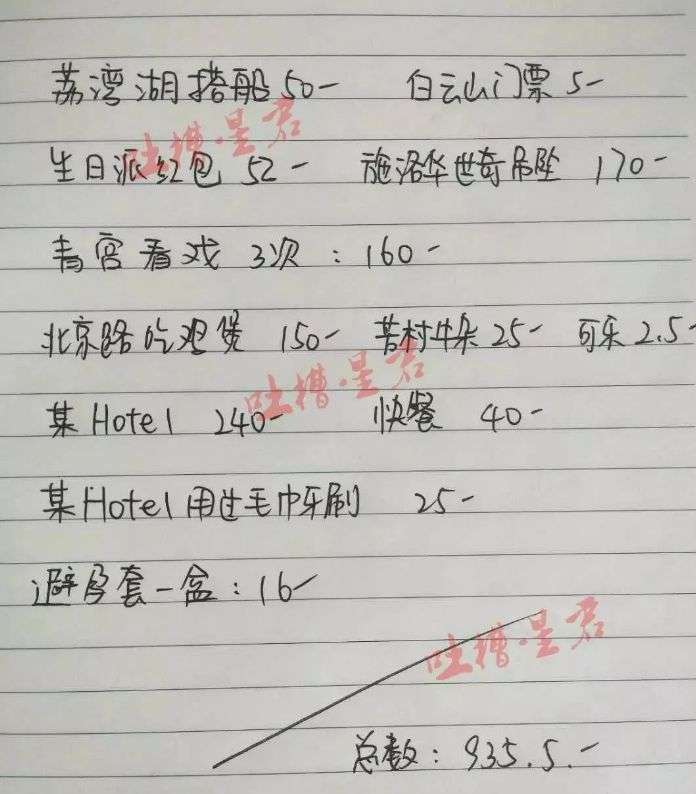 荔湾湖搭船 50- 白云山门票 5-
生日派红包 52- 施洛华世奇吊坠 170-
青宫看戏 3次 : 160-
北京路吃鸡煲 150- 苦村牛杂 25- 可乐 2.5-
某Hotel 240- 快餐 40-
某Hotel用过毛巾牙刷 25-
避孕套一盒 : 16-
总数 : 935.5.-
吐槽星君
吐槽星君
吐槽星君